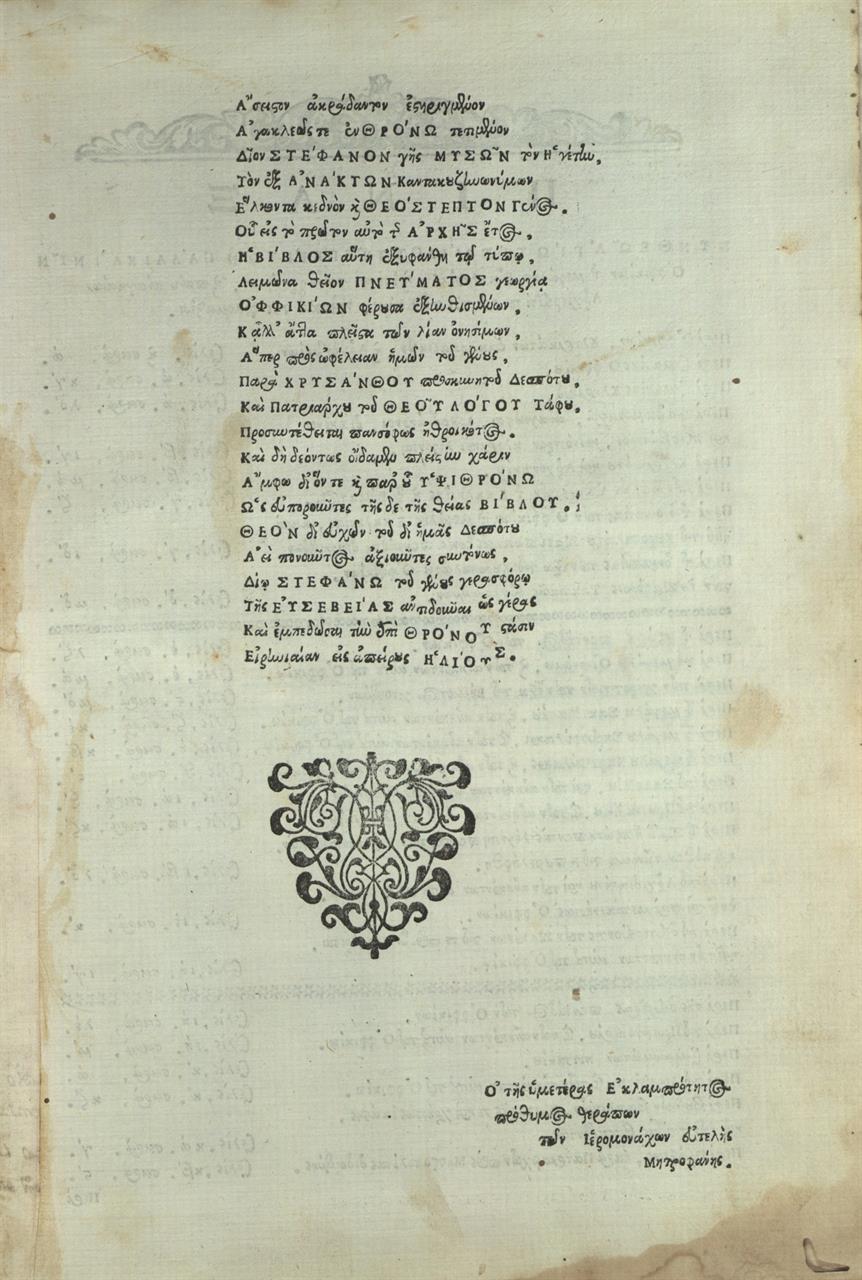 Ἄσειστον ἀκράδαντον ἐστηριγμένον
Ἀγακλεῶς τε ἐν ΘΡΌΝΩ τεπμένον
Δῖον ΣΤΈΦΑΝΟΝ γῆς ΜΥΣΩ͂Ν τὸν Ἡγέτην,
Τὸν ἐξ ἈΝΆΚΤΩΝ Καντακουζηνωνύμων
Ἕλκοντα κεδνὸν καὶ ΘΕΌΣΤΕΠΤΟΝ Γένος.
Οὗ εἰς τὸ πρῶτον αὐτὸ τῆς ἈΡΧΗ͂Σ ἔτος,
Ἡ ΒΊΒΛΟΣ αὕτη ἐξυφάνθη τῷ τύπῳ,
Λειμῶνα θεῖον ΠΝΕΎΜΑΤΟΣ γεωργίᾳ
ὈΦΦΙΚΊΩΝ φέρουσα ἐξηνθισμένων,
Κᾆλλ' ἄττα πλεῖστα τῶν λίαν ὀνησίμων,
Ἅπερ πρὸς ὠφέλειαν ἡμῶν τοῦ γένους,
Παρὰ ΧΡΥΣΆΝΘΟΥ προσκυνητοῦ Δεσπότου,
Καὶ Πατριάρχου τοῦ ΘΕΟΥ͂ ΛΌΓΟΥ Τάφου,
Προσυντέθειται πανσόφως ἠθροικότος.
Καὶ δὴ δεόντως οἴδαμεν πλείστην χάριν
Ἄμφω δι' ὅν τε καὶ παρ' οὗ ὙΨΙΘΡΌΝΩ
Ὡς εὐποροῦντες τῆς δε τῆς θείας ΒΊΒΛΟΥ.
ΘΕῸΝ δι' εὐχῶν τοῦ δι' ἡμᾶς Δεσπότου
Ἀεὶ πονοῦντος ἀξιοῦντες συντόνως,
Δίῳ ΣΤΕΦΆΝΩ τοῦ γένους γερασφόρῳ
Τῆς ΕΥΣΕΒΕΊΑΣ ἀντιδοῦναι ὡς γέρας
Καὶ ἐμπεδῶσαι τὴν ἐπὶ ΘΡΌΝΟΥ στάσιν
Εἰρηναίαν εἰς ἀπείρους ἩΛΊΟΥΣ.
Ὁ τῆς ὑμετέρας Ἐκλαμπρότητος
πρόθυμος θεράπων
τῶν Ἱερομονάχων εὐτελὴς
Μητροφάνης.